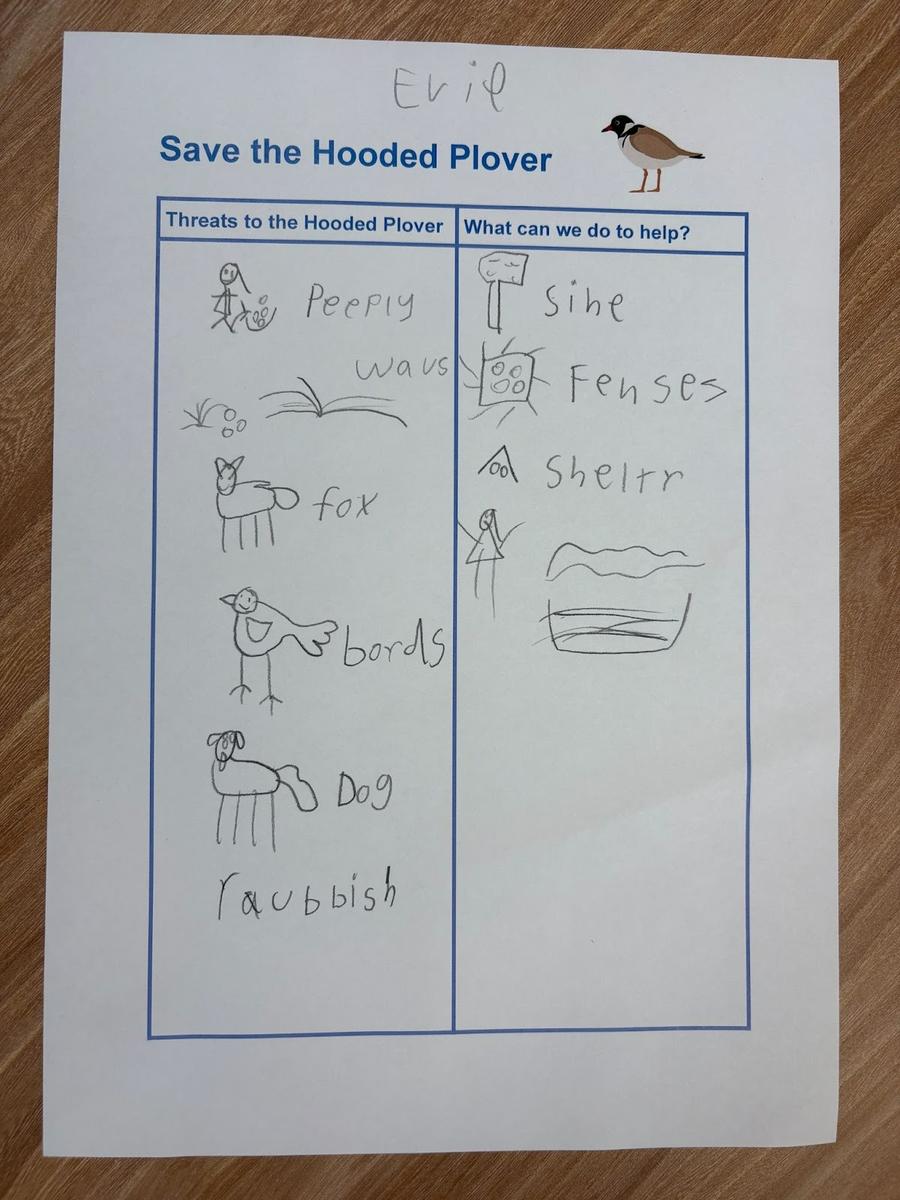 Evie
Save the Hooded Plover
Threats to the Hooded Plover
What can we do to help?
Peeply
wavs
fox
bords
Dog
raubbish
Sine
Fenses
Sheltr